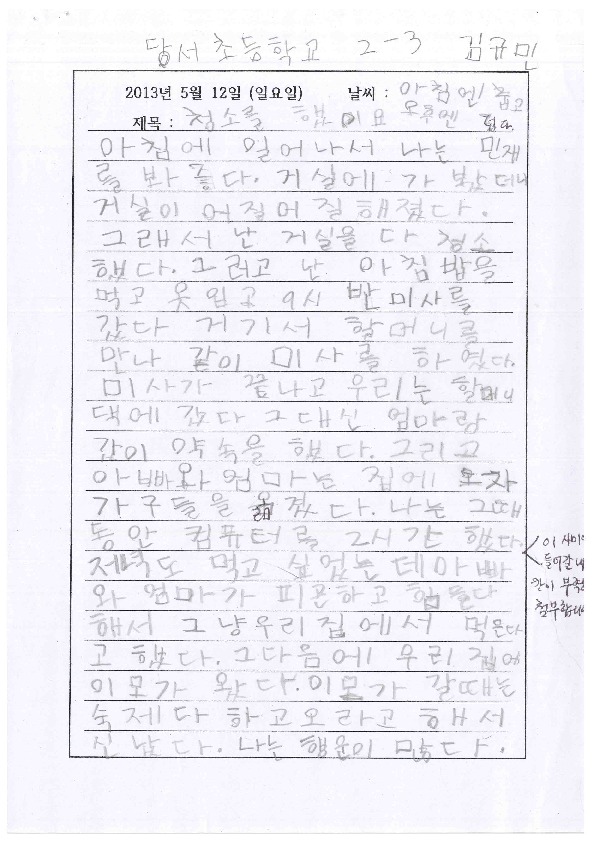 담서초등학교 2-3 김규민
2013년 5월 12일 (일요일) 날씨 : 아침엔 춥고
제목 : 청소를 했어요 오후엔 덥다.
아침에 일어나서 나는 민재
를 봐줬다. 거실에 가 봤더니
거실이 어질어질해졌다.
그래서 난 거실을 다 청소
했다. 그러고 난 아침밥을
먹고 옷입고 9시 반미사를
갔다 거기서 할머니를
만나 같이 미사를 하였다.
미사가 끝나고 우리는 할머니
댁에 갔다 그대신 엄마랑
같이 약속을 했다. 그리고
아빠와 엄마는 집에 오자
가구들을 옮겼다. 나는 그때
동안 컴퓨터를 2시간 했다.
이 사이에
들어갈 내
칸이 부족
첨부합니다
저녁도 먹고 싶었는데 아빠
와 엄마가 피곤하고 힘들다
해서 그냥우리집에서 먹는다
고 했다. 그다음에 우리 집에
이모가 왔다. 이모가 갈때는
숙제다 하고오라고 해서
신났다. 나는 행운이 많다.